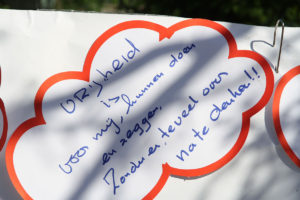 VRIJheid
is
voor mij, kunnen doen
en zeggen.
Zonder er teveel over
na te denken!!